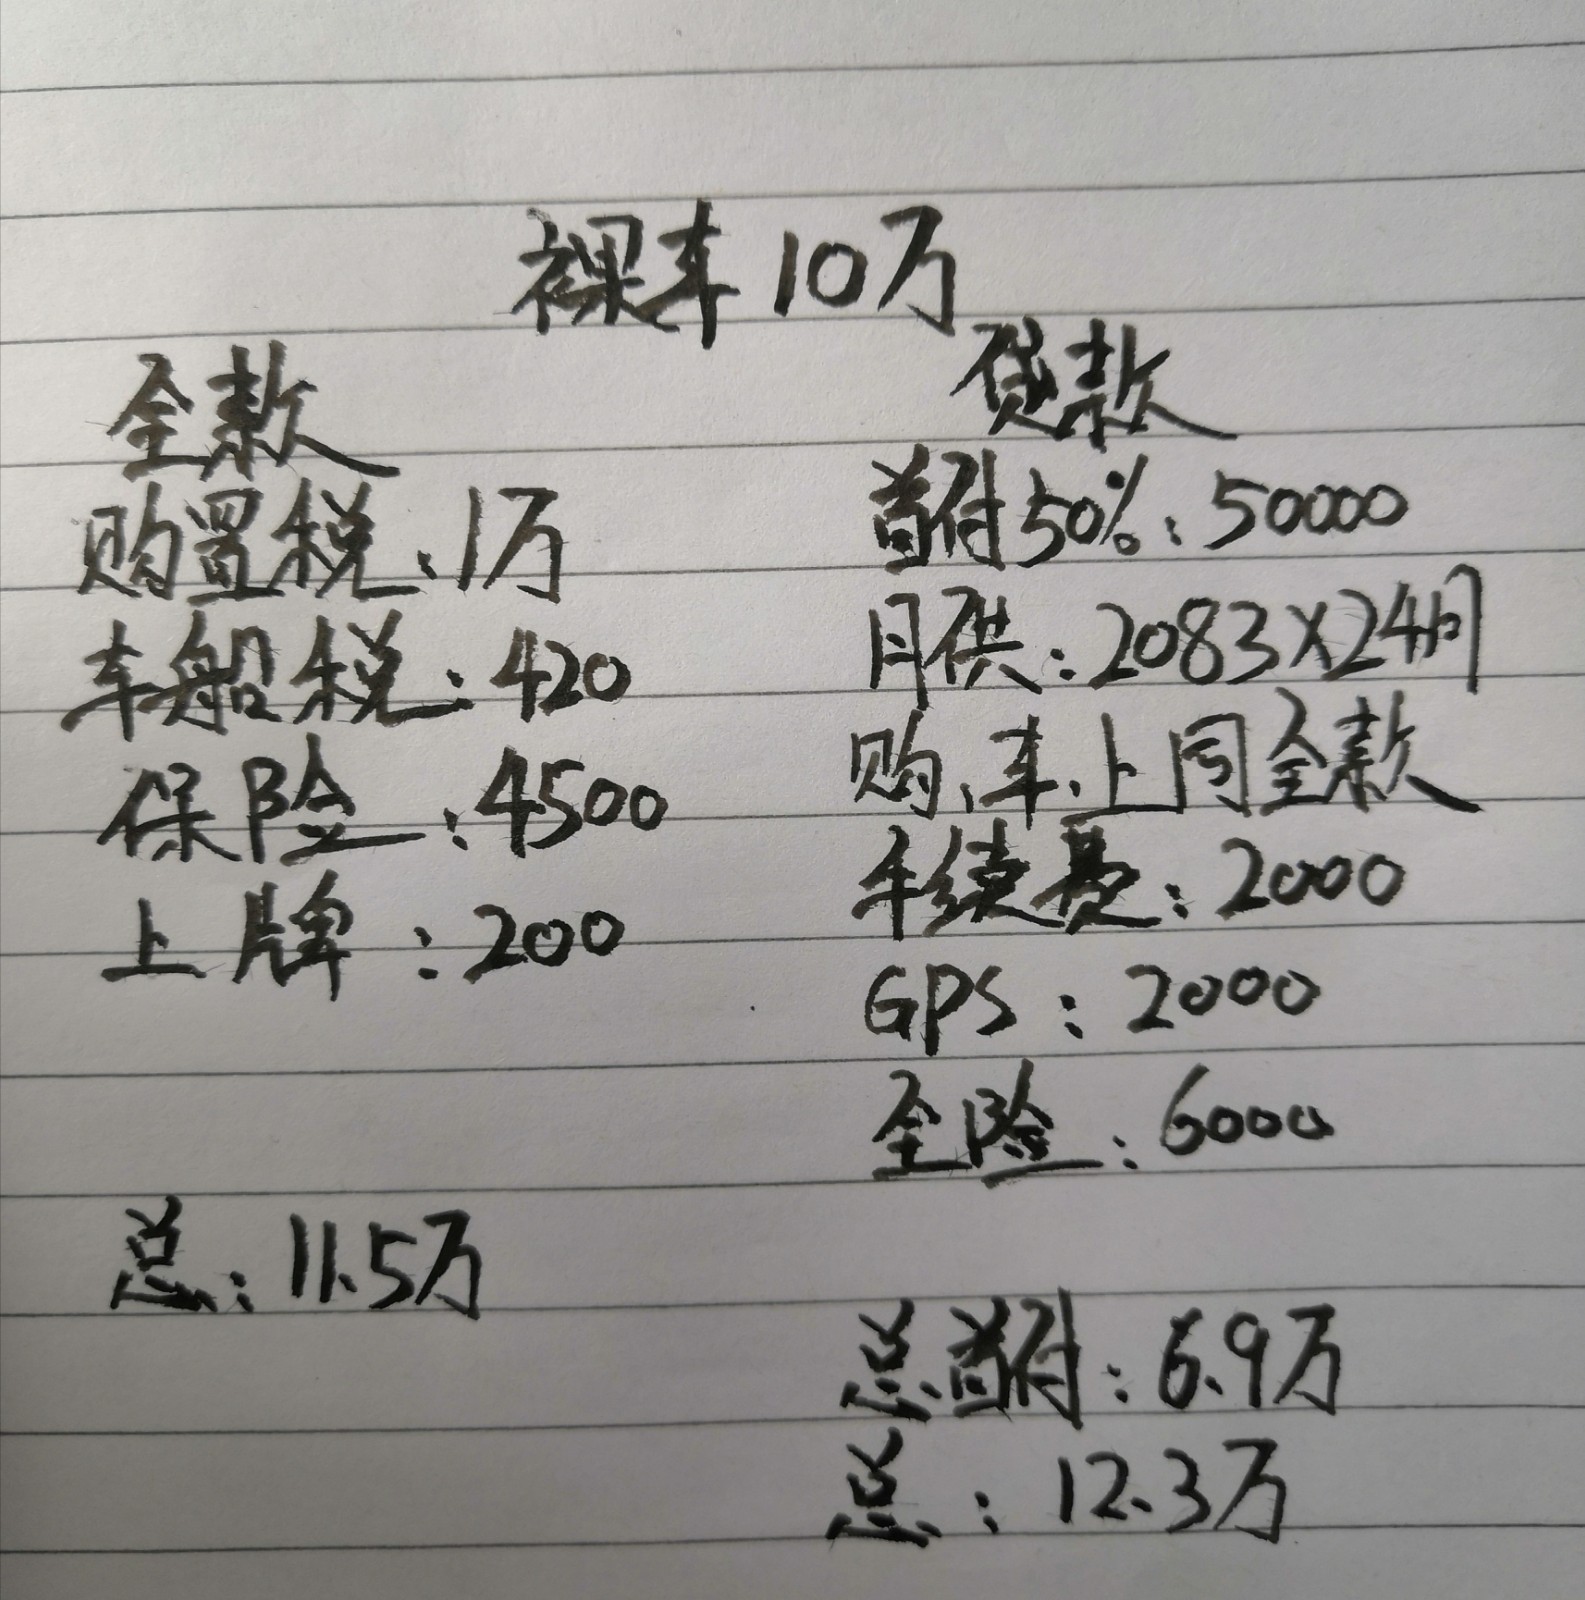 裸车10万
全款
购置税:1万
车船税:420
保险:4500
上牌:200
总:11.5万
贷款
首付50%:50000
月供:2083X24期
购、车、上同全款
手续费:2000
GPS:2000
全险:6000
总首付:6.9万
总:12.3万